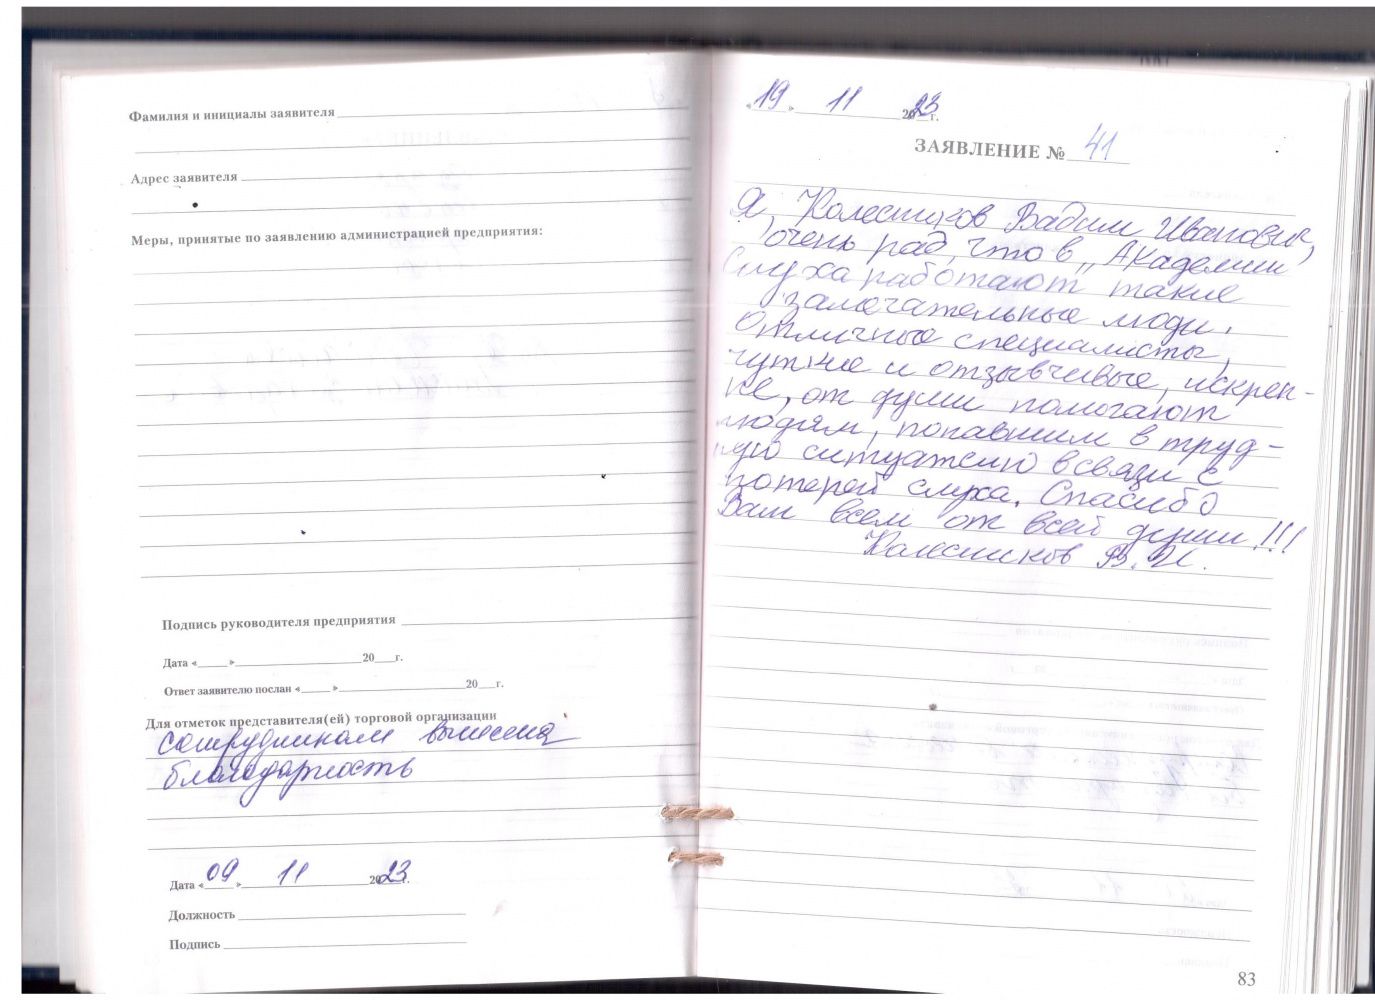 Фамилия и инициалы заявителя
Адрес заявителя
Меры, принятые по заявлению администрацией предприятия:
Подпись руководителя предприятия
Дата «____»____________20___г.
Ответ заявителю послан «____»____________20___г.
Для отметок представителя(ей) торговой организации
сотрудникам вынесена
благодарность
Дата «09» 11 2023г.
Должность
Подпись
«19» 11 2023г.
ЗАЯВЛЕНИЕ № 41
Я, Колесников Вадим Иванович,
очень рад, что в „Академии
Слуха работают такие
замечательные люди.
Отличные специалисты,
чуткие и отзывчивые, искрен-
не, от души помогают
людям, попавшим в труд-
ную ситуацию в связи с
потерей слуха. Спасибо
Вам всем от всей души!!!
Колесников В.И.
83